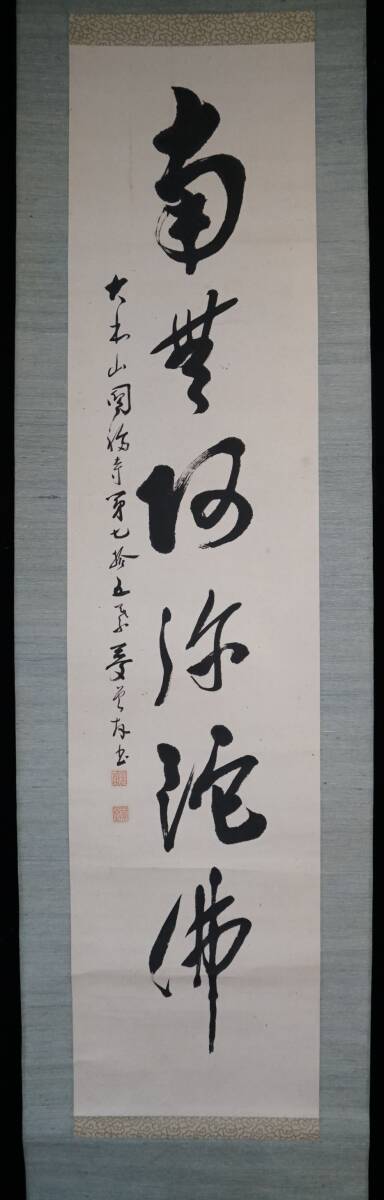 南無阿弥陀佛
大本山國福寺第七拾五系